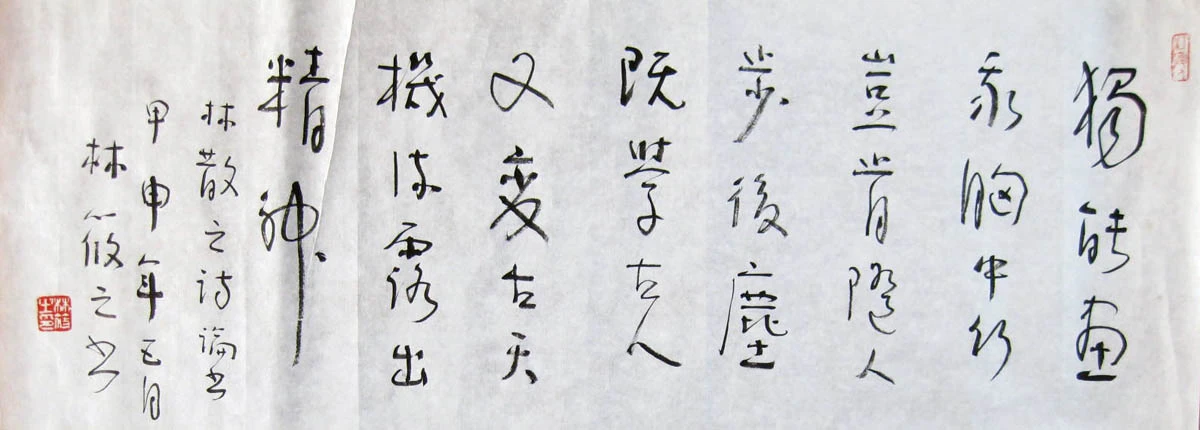 獨能畫
我胸中竹
豈肯隨人
步後塵
既學古人
又變古天
機流露出
精神
林散之詩論書
甲申年五月
林筱之書
林筱之印